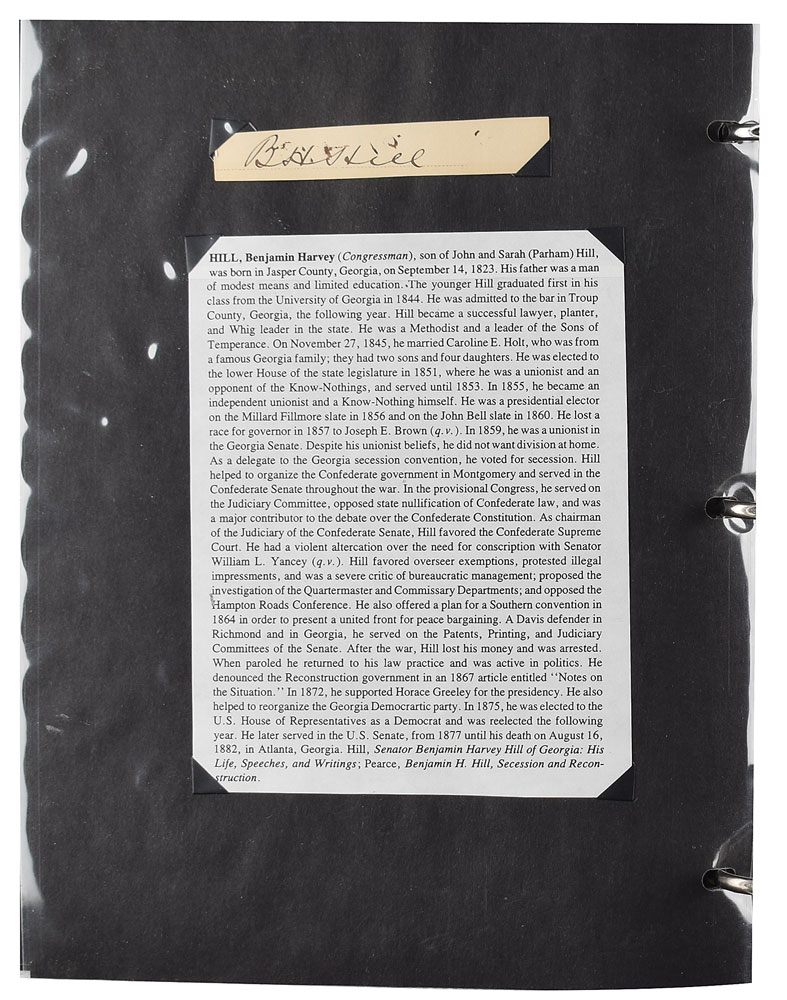 Bs H. Hill
HILL, Benjamin Harvey (Congressman), son of John and Sarah (Parham) Hill,
was born in Jasper County, Georgia, on September 14, 1823. His father was a man
of modest means and limited education. The younger Hill graduated first in his
class from the University of Georgia in 1844. He was admitted to the bar in Troup
County, Georgia, the following year. Hill became a successful lawyer, planter,
and Whig leader in the state. He was a Methodist and a leader of the Sons of
Temperance. On November 27, 1845, he married Caroline E. Holt, who was from
a famous Georgia family; they had two sons and four daughters. He was elected to
the lower House of the state legislature in 1851, where he was a unionist and an
opponent of the Know-Nothings, and served until 1853. In 1855, he became an
independent unionist and a Know-Nothing himself. He was a presidential elector
on the Millard Fillmore slate in 1856 and on the John Bell slate in 1860. He lost a
race for governor in 1857 to Joseph E. Brown (q.v.). In 1859, he was a unionist in
the Georgia Senate. Despite his unionist beliefs, he did not want division at home.
As a delegate to the Georgia secession convention, he voted for secession. Hill
helped to organize the Confederate government in Montgomery and served in the
Confederate Senate throughout the war. In the provisional Congress, he served on
the Judiciary Committee, opposed state nullification of Confederate law, and was
a major contributor to the debate over the Confederate Constitution. As chairman
of the Judiciary of the Confederate Senate, Hill favored the Confederate Supreme
Court. He had a violent altercation over the need for conscription with Senator
William L. Yancey (q.v.). Hill favored overseer exemptions, protested illegal
impressments, and was a severe critic of bureaucratic management; proposed the
investigation of the Quartermaster and Commissary Departments; and opposed the
Hampton Roads Conference. He also offered a plan for a Southern convention in
1864 in order to present a united front for peace bargaining. A Davis defender in
Richmond and in Georgia, he served on the Patents, Printing, and Judiciary
Committees of the Senate. After the war, Hill lost his money and was arrested.
When paroled he returned to his law practice and was active in politics. He
denounced the Reconstruction government in an 1867 article entitled "Notes on
the Situation." In 1872, he supported Horace Greeley for the presidency. He also
helped to reorganize the Georgia Democrartic party. In 1875, he was elected to the
U.S. House of Representatives as a Democrat and was reelected the following
year. He later served in the U.S. Senate, from 1877 until his death on August 16,
1882, in Atlanta, Georgia. Hill, Senator Benjamin Harvey Hill of Georgia: His
Life, Speeches, and Writings; Pearce, Benjamin H. Hill, Secession and Recon-
struction.